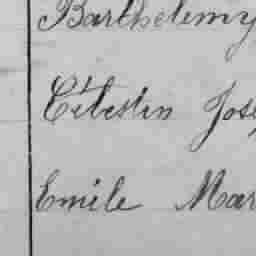 Barthelemy
Célestin Jos
Emile Mar